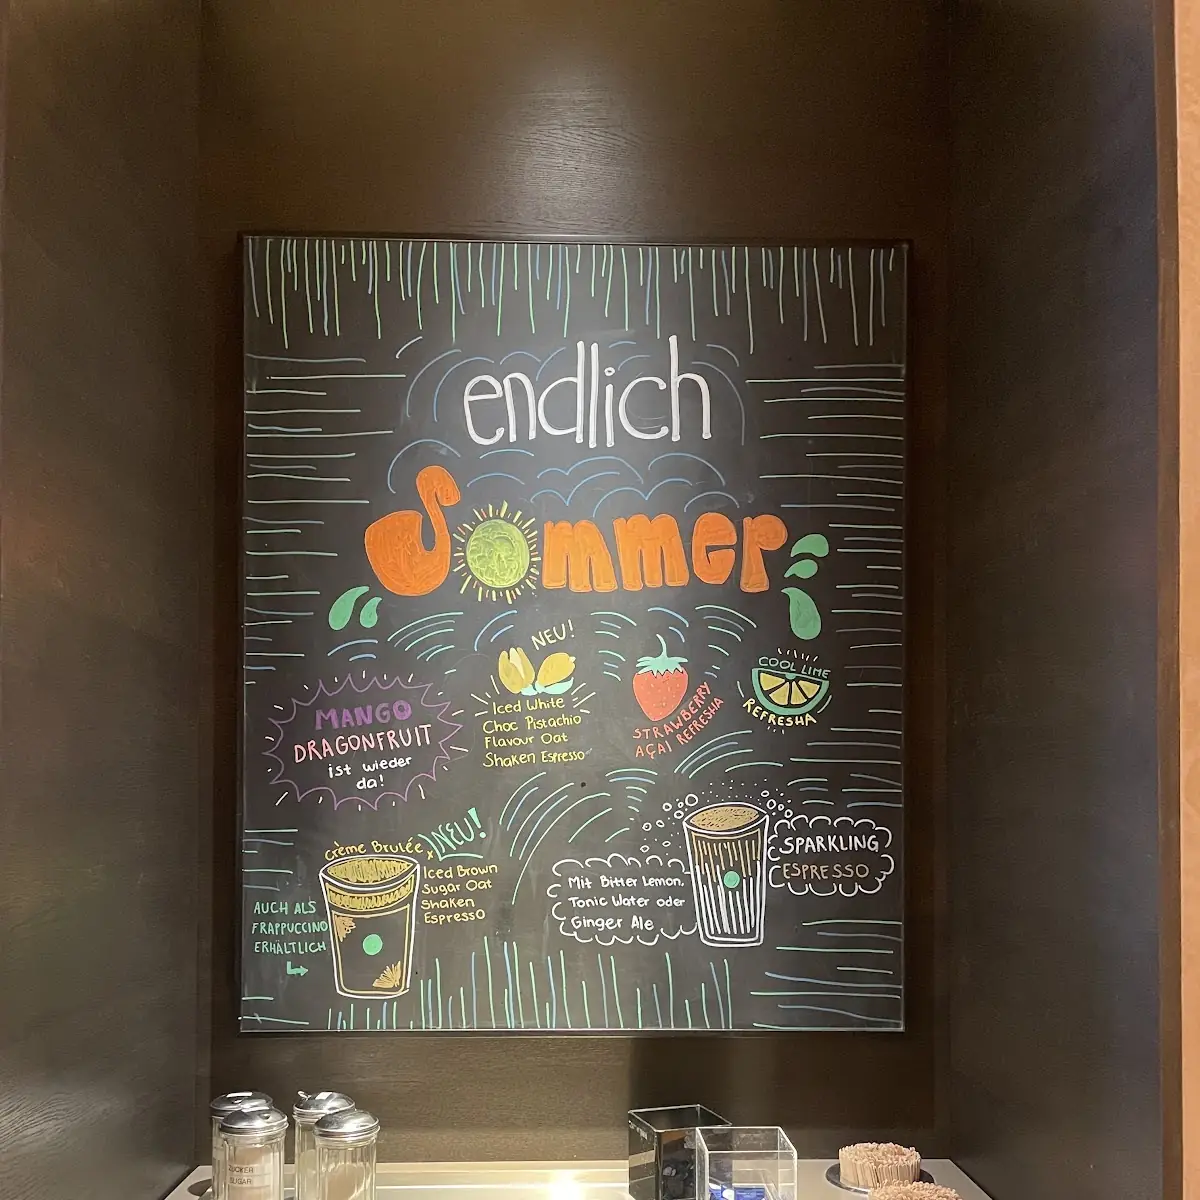 endlich
Sommer
NEU!
Iced White
Choc Pistachio
Flavour Oat
Shaken Espresso
STRAWBERRY
AÇAI REFRESHA
COOL LIME
REFRESHA
MANGO
DRAGONFRUIT
ist wieder
da!
Crème Brulée
NEU!
Iced Brown
Sugar Oat
Shaken
Espresso
AUCH ALS
FRAPPUCCINO
ERHÄLTLICH
Mit Bitter Lemon,
Tonic Water oder
Ginger Ale
SPARKLING
ESPRESSO
ZUCKER
SUGAR